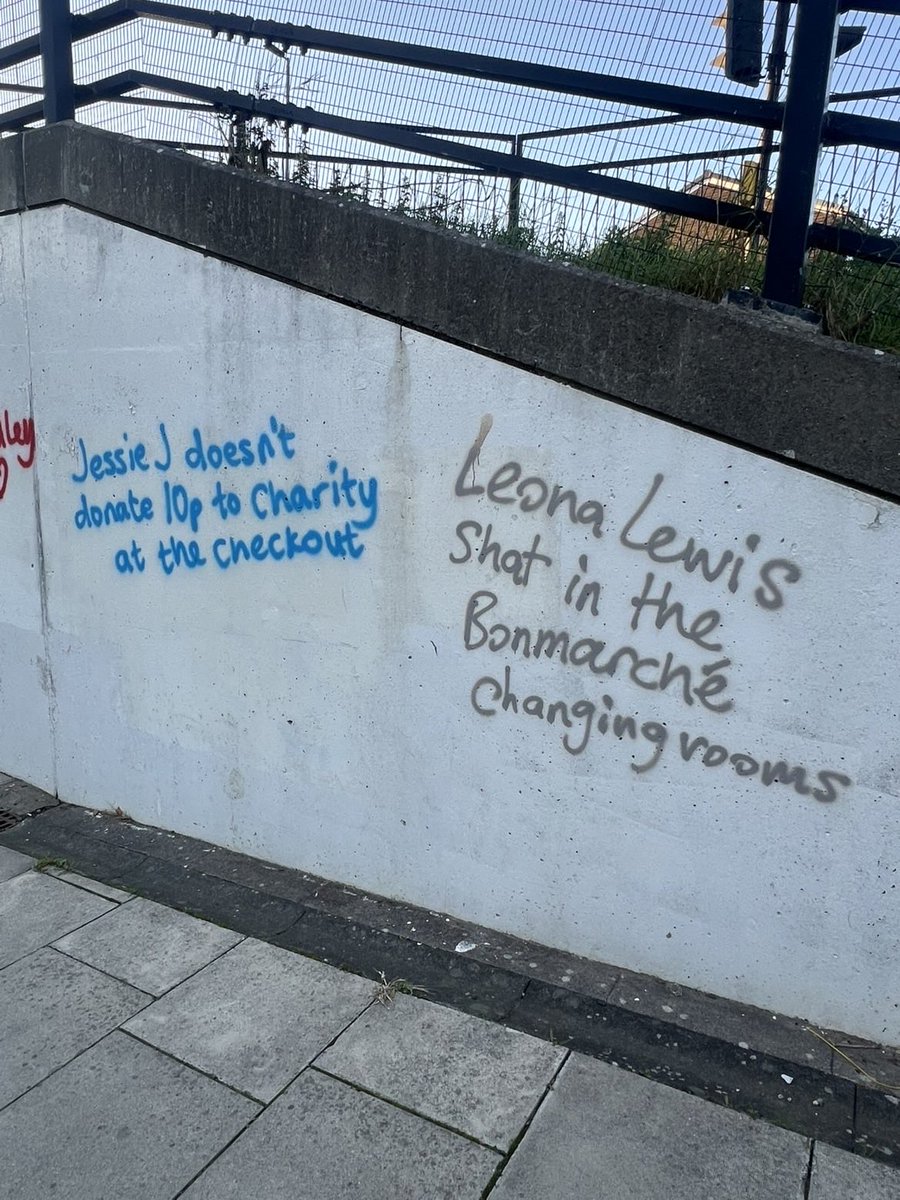 Jessie J doesn't
donate 10p to charity
at the checkout
Leona Lewis
Shat in the
Bonmarché
Changing rooms